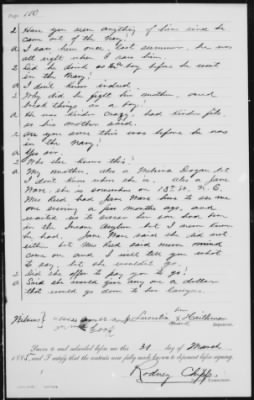 Page 110
Q Have you seen anything of him since he
came out of the Navy?
A I saw him once, last summer, he was
all right when I saw him.
Q Did he drink as a boy before he went
in the Navy?
A I don't know indeed.
Q Why did he fight his mother, and
break things as a boy?
A He was kinder crazy, had kinder fits
so his mother said.
Q Are you sure this was before he was
in the Navy?
A Yes sir.
Q Who else knew this?
A My mother, also a
I don't know where she is. also a Jane
Ware, she is somewhere on 13th St. N.E.
Mrs Reid had Jane Ware come to see me
one evening a few months ago, and
wanted us to swear her son had been
in the Insane Asylum but I never knew
he had. Jane Ware said she did not
either but Mrs Reid said never mind
come on and I will tell you what
to say, but she wouldn't go.
Q Did she offer to pay you to go?
A Said she would give any one a dollar
that would go down to her lawyer.
her
Lucretia x
mark
Deponent.
Sworn to and subscribed before me this 31 day of March
1885, and I certify that the contents were fully made known to deponent before signing.
Rodney